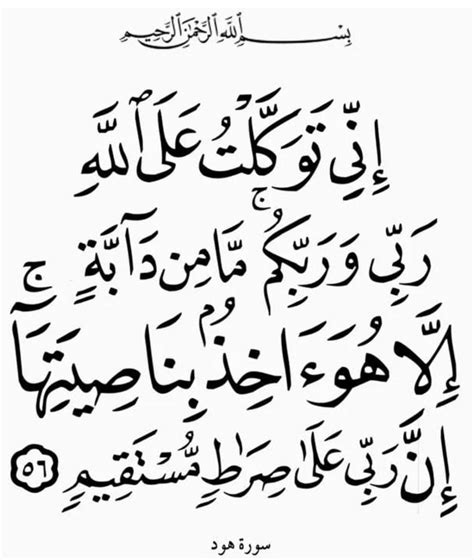 بِسْمِ ٱللَّهِ ٱلرَّحْمَٰنِ ٱلرَّحِيمِ
إِنِّي تَوَكَّلْتُ عَلَى ٱللَّهِ
رَبِّي وَرَبِّكُم ۚ مَّا مِن دَآبَّةٍ
إِلَّا هُوَ ءَاخِذُۢ بِنَاصِيَتِهَآ ۚ
إِنَّ رَبِّي عَلَىٰ صِرَٰطٍ مُّسْتَقِيمٍ ٥٦
سورة هود